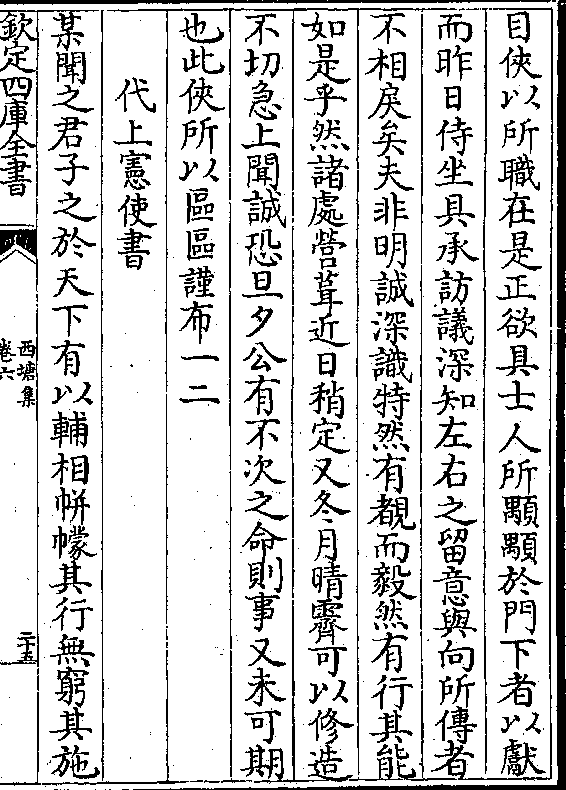 目俠以所職在是正欲具士人所顒顒於門下者以獻
而昨日侍坐具承訪議深知左右之留意與向所傳者
不相戾矣夫非明誠深識特然有覩而毅然有行其能
如是乎然諸處營葺近日稍定又冬月晴霽可以修造
不切急上聞誠恐旦夕公有不次之命則事又未可期
也此俠所以區區謹布一二
代上憲使書
某聞之君子之於天下有以輔相帡幪其行無窮其施
欽定四庫全書
西塘集
卷六
二十五